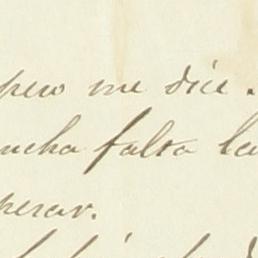 pero me dice.
ucha falta la
perar.